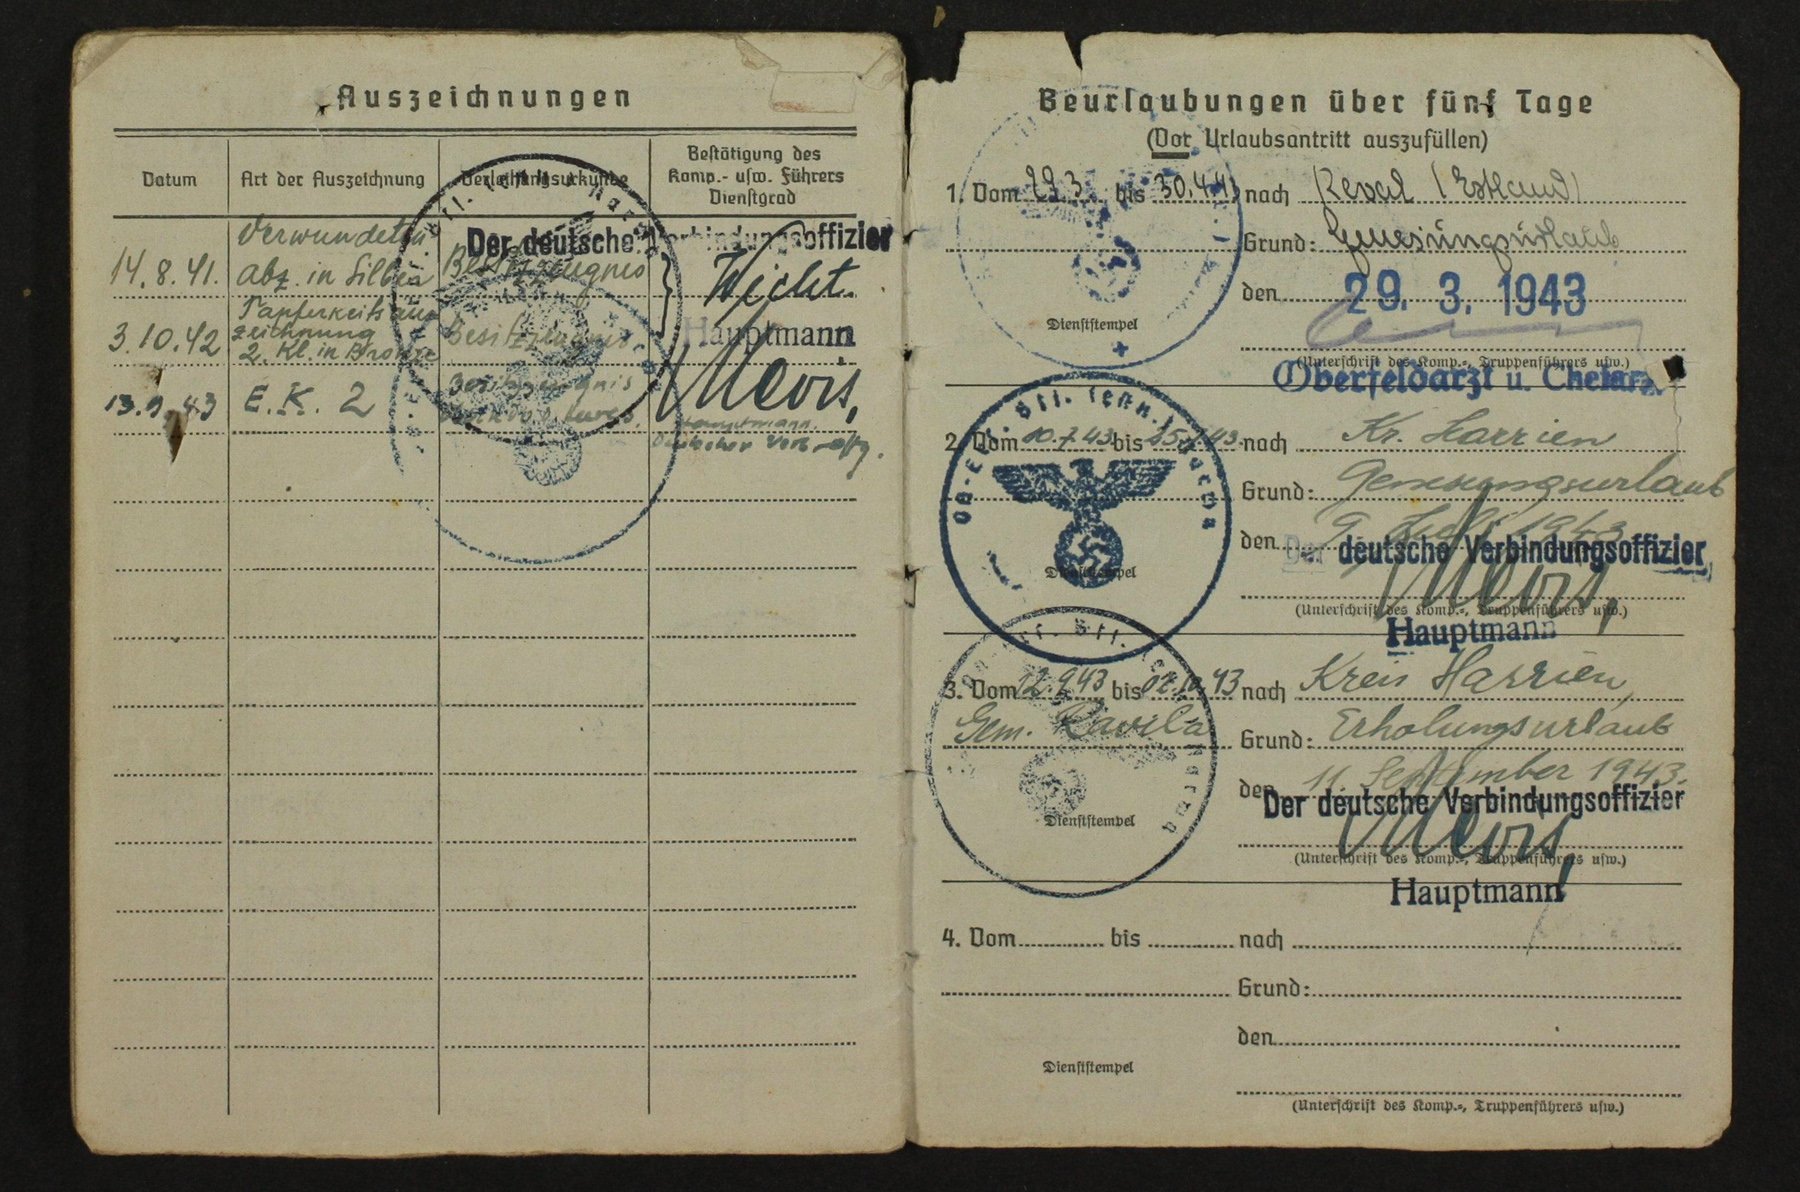 Auszeichnungen
Datum
Art der Auszeichnung
Verleihungsurkunde
Bestätigung des
Komp.- usw. Führers
Dienstgrad
Der deutsche Verbindungsoffizier
14.8.41.
Verwundeten
abz. in Silber
Besitzzeugnis
Wicht.
3.10.42
Tapferkeitsaus
zeichnung
2. Kl. in Bronze
Besitzzeugnis
Hauptmann
13.9.43
E.K. 2
Besitzzeugnis
Meois,
Hauptmann.
Deutscher Verb.
Beurlaubungen über fünf Tage
(Vor Urlaubsantritt auszufüllen)
1. Vom 29.3. bis 30.4.43 nach Reval (Estland)
Grund: Genesungsurlaub
den 29. 3. 1943
Dienststempel
(Unterschrift des Komp.-, Truppenführers usw.)
Oberfeldarzt u. Chefarzt
2. Vom 10.7.43 bis 25.7.43. nach Kr. Harrien
Grund: Genesungsurlaub
den 9. Juli 1943
Der deutsche Verbindungsoffizier
Dienststempel
Meois,
(Unterschrift des Komp.-, Truppenführers usw.)
Hauptmann
3. Vom 12.9.43 bis 02.10.43 nach Kreis Harrien,
Gem. Ravila
Grund: Erholungsurlaub
den 11. September 1943.
Der deutsche Verbindungsoffizier
Dienststempel
Meois,
(Unterschrift des Komp.-, Truppenführers usw.)
Hauptmann
4. Vom bis nach
Grund:
den
Dienststempel
(Unterschrift des Komp.-, Truppenführers usw.)